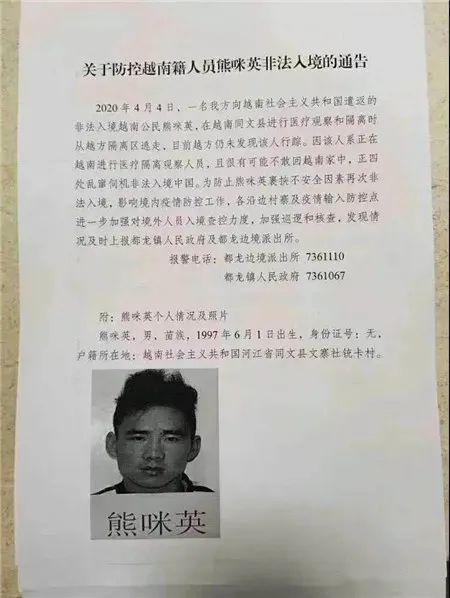 关于防控越南籍人员熊咪英非法入境的通告
2020年4月4日，一名我方向越南社会主义共和国遣返的
非法入境越南公民熊咪英，在越南同文县进行医疗观察和隔离时
从越方隔离区逃走，目前越方仍未发现该人行踪。因该人系正在
越南进行医疗隔离观察人员，且很有可能不敢回越南家中，正四
处乱窜伺机非法入境中国。为防止熊咪英裹挟不安全因素再次非
法入境，影响境内疫情防控工作，各沿边村寨及疫情输入防控点
进一步加强对境外人员入境查控力度，加强巡逻和核查，发现情
况及时上报都龙镇人民政府及都龙边境派出所。
报警电话：都龙边境派出所 7361110
都龙镇人民政府 7361067
附：熊咪英个人情况及照片
熊咪英，男，苗族，1997年6月1日出生，身份证号：无，
户籍所在地：越南社会主义共和国河江省同文县文寨社铳卡村。
熊咪英